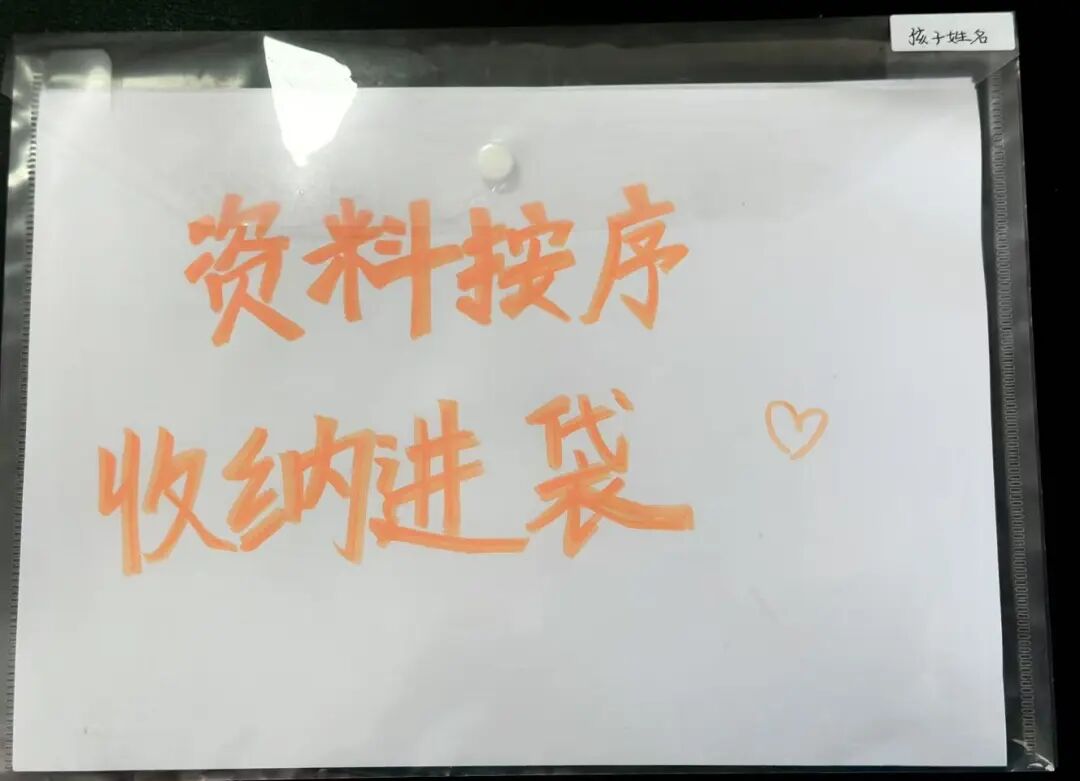 孩子姓名
资料按序
收纳进袋